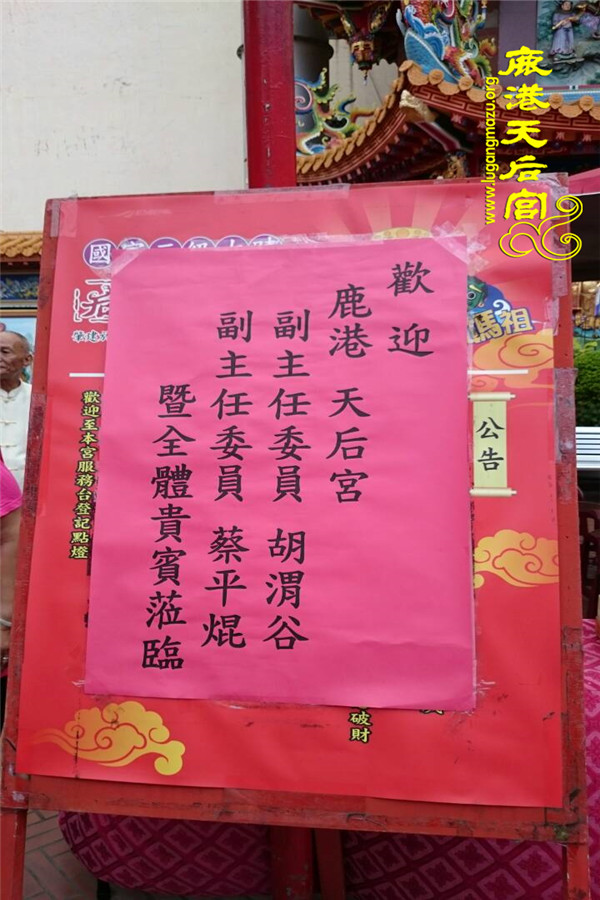 歡迎
鹿港 天后宮
副主任委員 胡渭谷
副主任委員 蔡平焜
暨全體貴賓蒞臨
公告
歡迎至本宮服務台登記點燈
國
媽祖
破財
鹿港天后宮
www.lugangmazu.org